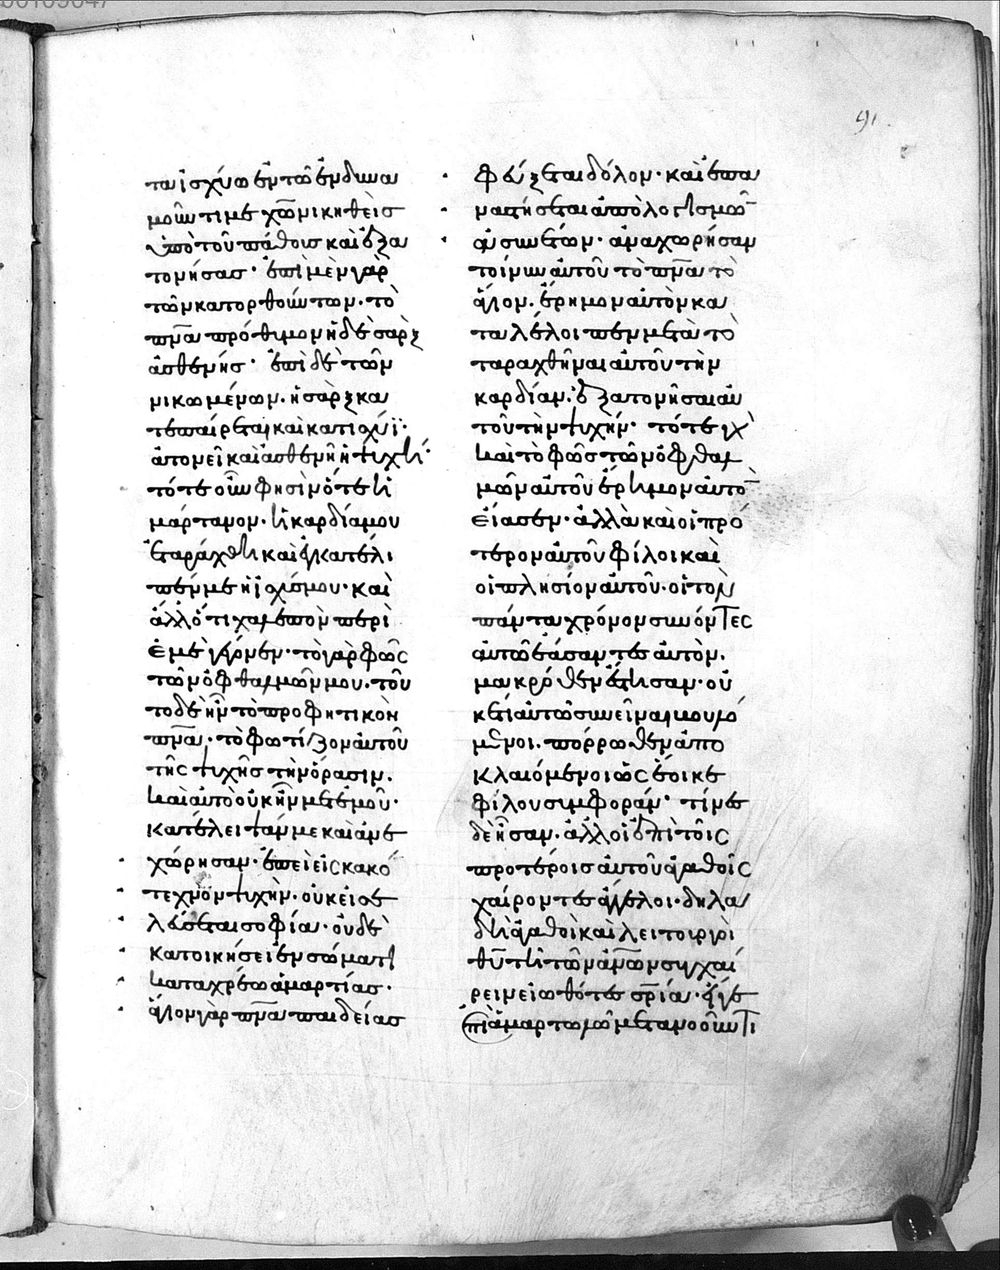 91
ται ἰσχύω ἐν τῶ ἐνδυνα
μοῦντί με χῶ νικηθεὶς
ὑπὸ τοῦ πάθους καὶ ἐξα
τονήσας· ἐπὶ μὲν γὰρ
τῶν κατορθούντων· τὸ
πνᾶ πρόθυμον ἡ δὲ σὰρξ
ἀσθενής· ἐπὶ δὲ τῶν
νικωμένων· ἡ σὰρξ κα
τεπαίρεται καὶ κατισχύϊ·
ἀτονεῖ καὶ ἀσθενῆ ἡ ψυχή·
τότε οὖν φησὶν ὅτε ἡ
μάρτανον· ἡ καρδία μου
ἐταράχθη καὶ ἐγκατέλι
πέν με ἡ ἰσχύς μου· καὶ
ἀλλό τι χαλεπὸν περὶ
ἐμὲ γέγονεν· τὸ γὰρ φῶς
τῶν ὀφθαλμῶν μου· τοῦ
το δὲ ἦν τὸ προφητικὸν
πνᾶ· τὸ φωτίζον αὐτοῦ
τῆς ψυχῆς τὴν ὅρασιν.
καὶ αὐτὸ οὐκ ἦν μετ' ἐμοῦ·
κατέλειψάν με καὶ ἀνε
χώρησαν· ἐπεὶ εἰς κακό
τεχνον ψυχὴν· οὐκ εἰσε
λεύσεται σοφία· οὐδὲ
κατοικήσει ἐν σώματι
καταχρέω ἁμαρτίας·
ἅγιον γὰρ πνᾶ παιδείας
φεύξεται δόλον· καὶ ἐπα
ναστήσεται ἀπὸ λογισμῶ
ἀσυνέτων· ἀναχωρήσαν
τοίνυν αὐτοῦ τὸ πνᾶ τὸ
ἅγιον· ἔρημον αὐτὸν κα
ταλέλοιπεν μετὰ τὸ
ταραχθῆναι αὐτοῦ τὴν
καρδίαν· ἐξατονῆσαι αὐ
τοῦ τὴν ψυχήν· τότε
καὶ τὸ φῶς τῶν ὀφθαλ
μῶν αὐτοῦ ἔρημον αὐτὸ
εἴασεν· ἀλλὰ καὶ οἱ πρό
τερον αὐτοῦ φίλοι καὶ
οἱ πλησίον αὐτοῦ· οἱ τὸν
πάντα χρόνον συνόντες
αὐτῶ ἐάσαντες αὐτὸν.
μακρόθεν ἔστησαν· οὐ
κέτι αὐτῶ συνεῖναι βουλό
μενοι. πόρρωθεν ἀπο
κλαιόμενοι ὡς ἔοικε
φίλου συμφοράν· τί με
δεῆσαν· ἀλλ' οἱ ἐπὶ τοῖς
προτέροις αὐτοῦ ἀγαθοῖς
χαίροντες ἄγγελοι· δηλα
δὴ ἀγαθοὶ καὶ λειτουργοὶ
θῦ τῆ τῶν ἀνῶν συγχαί
ρειν εἰωθότες σρία· εἴγε
ἐπὶ ἁμαρτωλῶ μετανοοῦντι